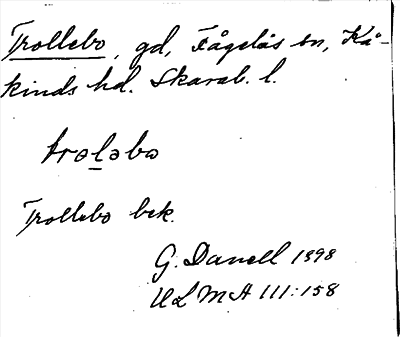 Trollebo, gd, Fågelås sn, Kå-
kinds hd. Skarab. l.
troləbo
Trollebo bek.
G. Danell 1898
ULMA 111:158